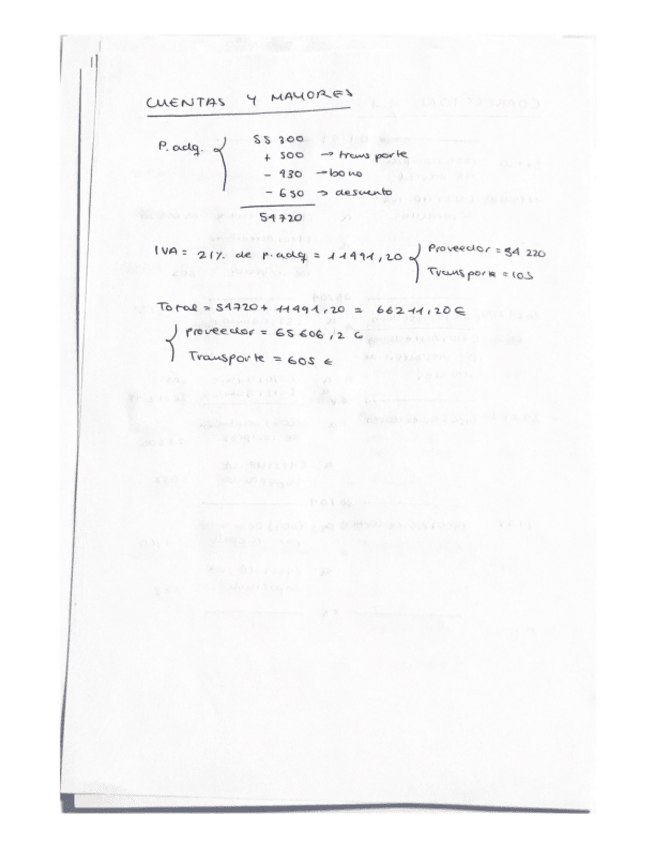 CUENTAS Y MAYORES
P. adq. { 55 300
+ 500 → transporte
- 430 → bono
- 650 → descuento
54720
IVA = 21% de p. adq = 11491,20 { Proveedor = 54 220
Transporte = 105
Total = 54720 + 11491,20 = 66211,20 €
{ proveedor = 65606,2 €
Transporte = 605 €